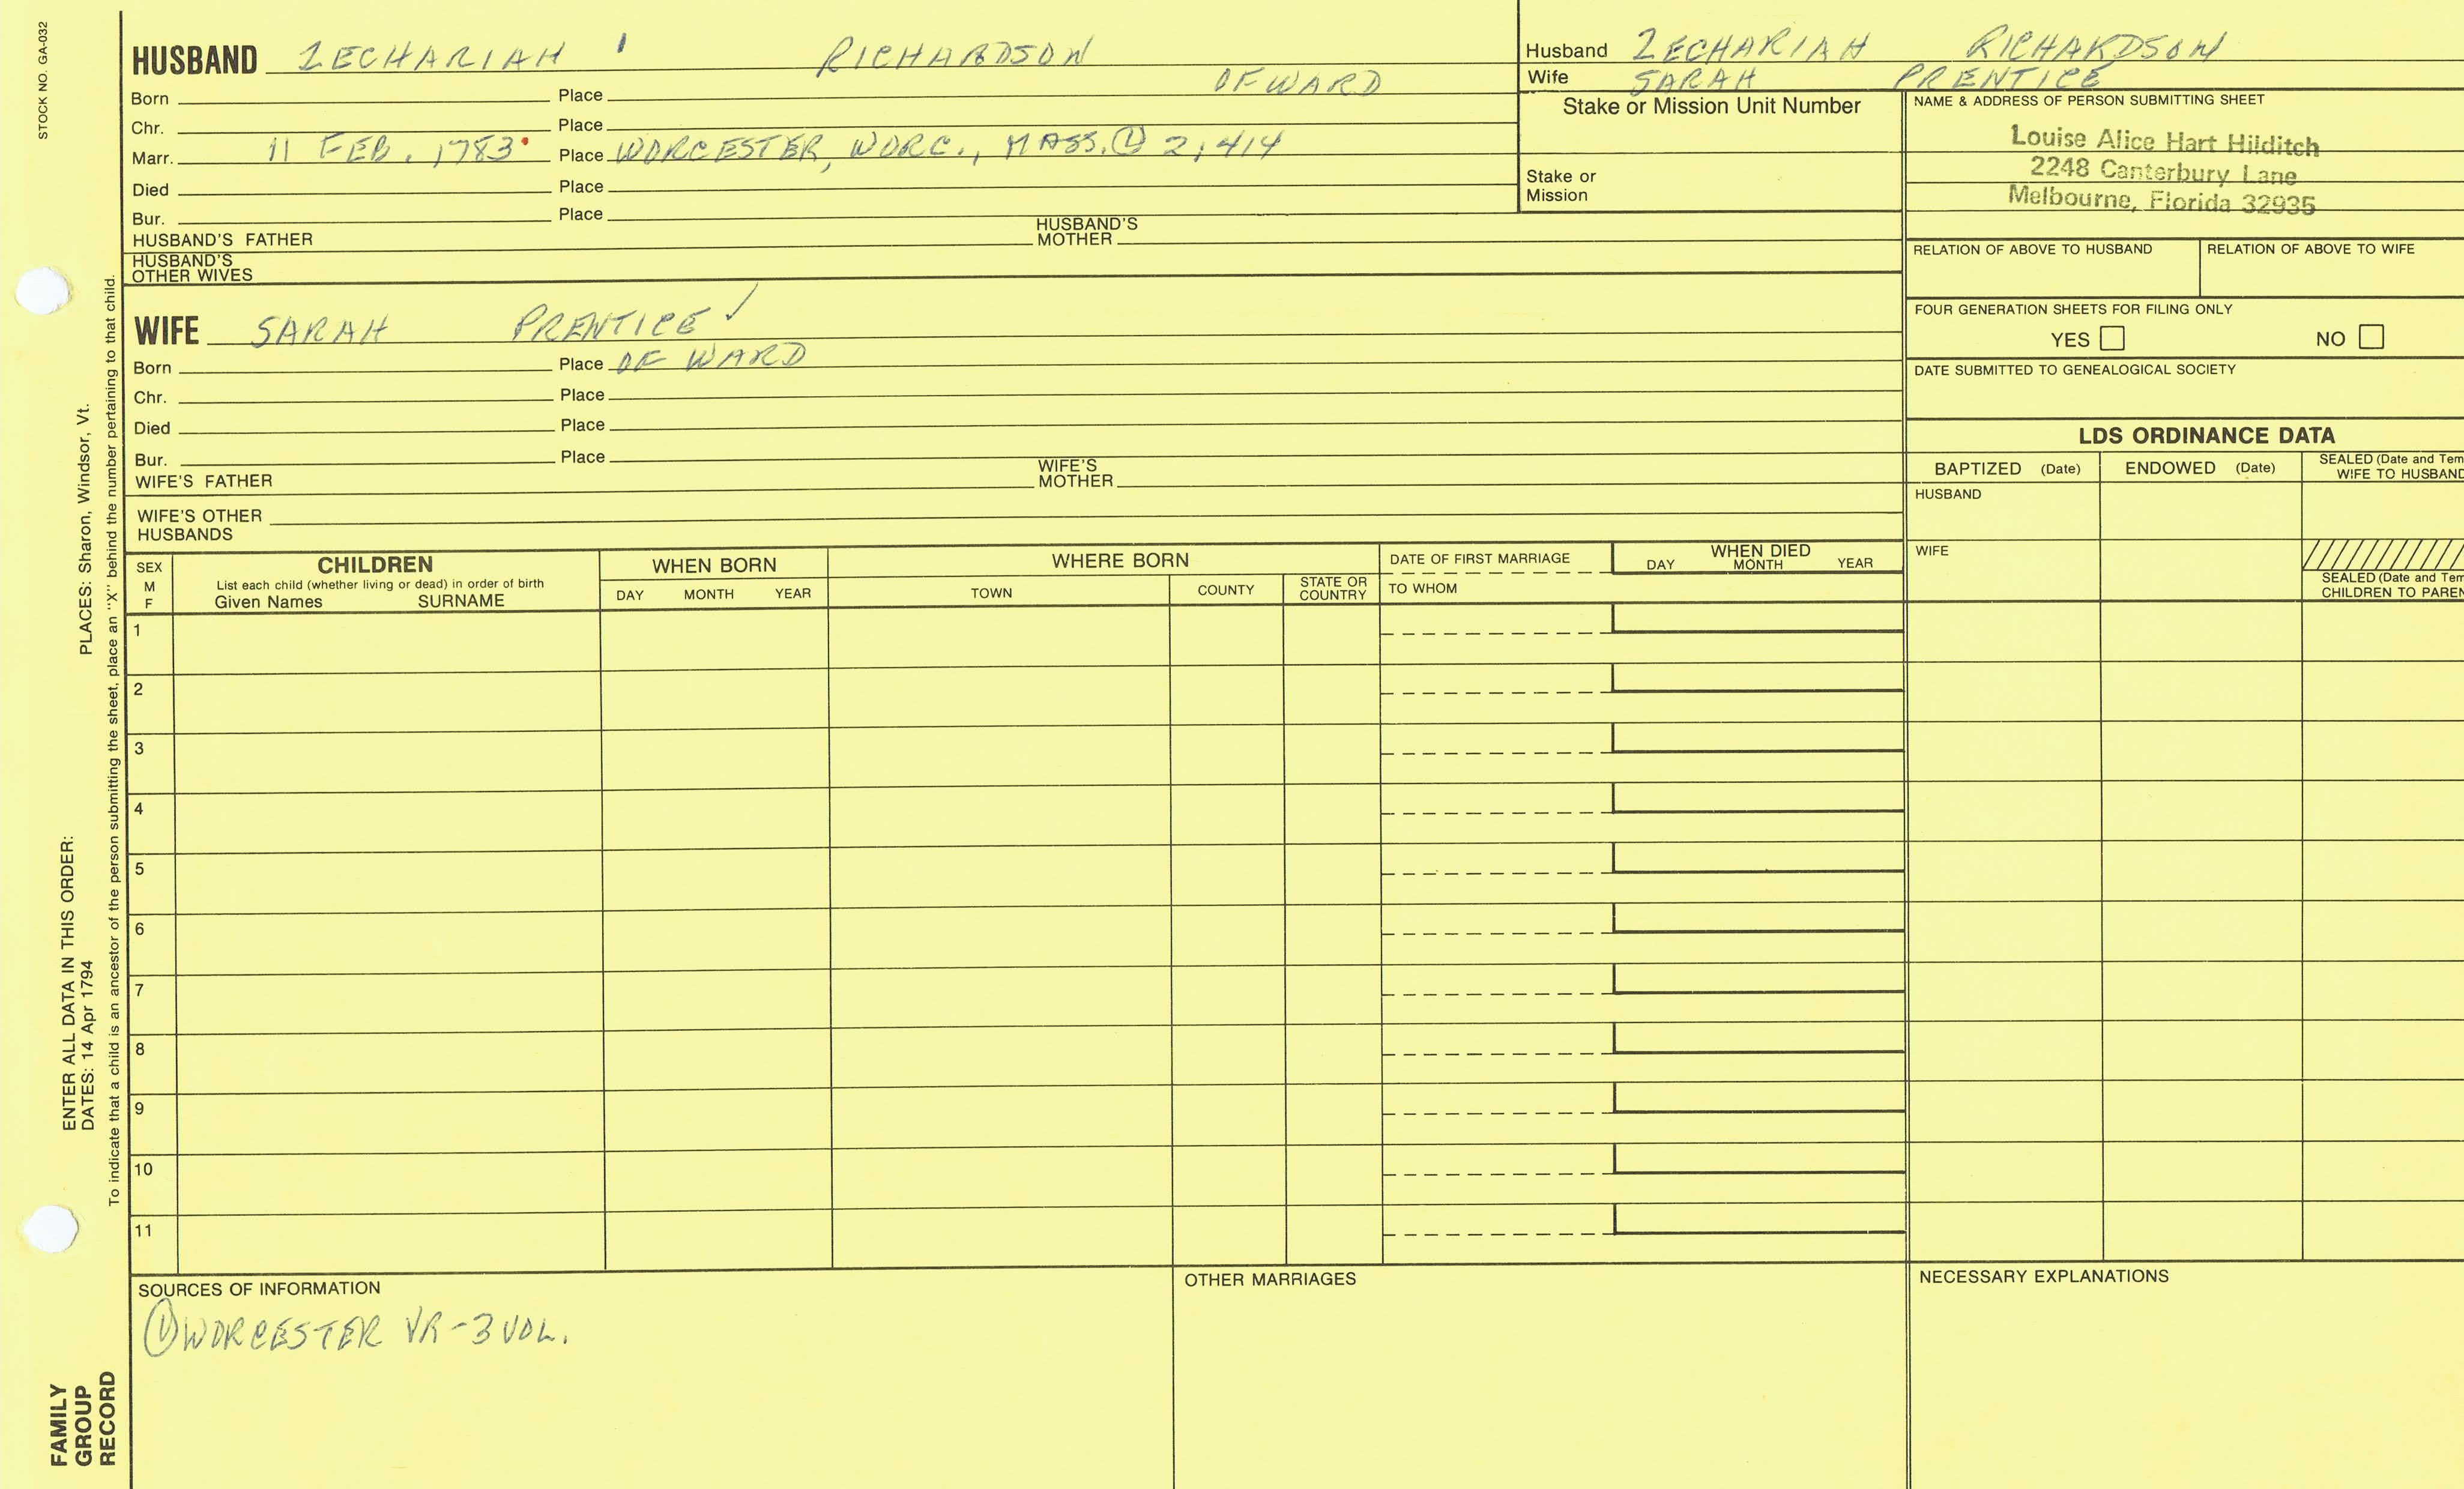 STOCK NO. GA-032
HUSBAND ZECHARIAH RICHARDSON OF WARD
Born Place
Chr. Place
Marr. 11 FEB. 1783 Place WORCESTER, WORC., MASS. ① 2,414
Died Place
Bur. Place
HUSBAND'S FATHER HUSBAND'S MOTHER
HUSBAND'S OTHER WIVES
WIFE SARAH PRENTICE ✓
Born Place OF WARD
Chr. Place
Died Place
Bur. Place
WIFE'S FATHER WIFE'S MOTHER
WIFE'S OTHER HUSBANDS
Husband ZECHARIAH RICHARDSON
Wife SARAH PRENTICE
Stake or Mission Unit Number
Stake or
Mission
NAME & ADDRESS OF PERSON SUBMITTING SHEET
Louise Alice Hart Hilditch
2248 Canterbury Lane
Melbourne, Florida 32935
RELATION OF ABOVE TO HUSBAND RELATION OF ABOVE TO WIFE
FOUR GENERATION SHEETS FOR FILING ONLY
YES NO
DATE SUBMITTED TO GENEALOGICAL SOCIETY
LDS ORDINANCE DATA
BAPTIZED (Date) ENDOWED (Date) SEALED (Date and Tem
WIFE TO HUSBAND
HUSBAND
WIFE
SEALED (Date and Tem
CHILDREN TO PAREN
SEX
M
F
CHILDREN
List each child (whether living or dead) in order of birth
Given Names SURNAME
WHEN BORN
DAY MONTH YEAR
WHERE BORN
TOWN COUNTY STATE OR COUNTRY
DATE OF FIRST MARRIAGE
TO WHOM
WHEN DIED
DAY MONTH YEAR
1
2
3
4
5
6
7
8
9
10
11
SOURCES OF INFORMATION
① WORCESTER VR - 3 VOL.
OTHER MARRIAGES
NECESSARY EXPLANATIONS
ENTER ALL DATA IN THIS ORDER:
DATES: 14 Apr 1794 PLACES: Sharon, Windsor, Vt.
To indicate that a child is an ancestor of the person submitting the sheet, place an "X" behind the number pertaining to that child.
FAMILY
GROUP
RECORD